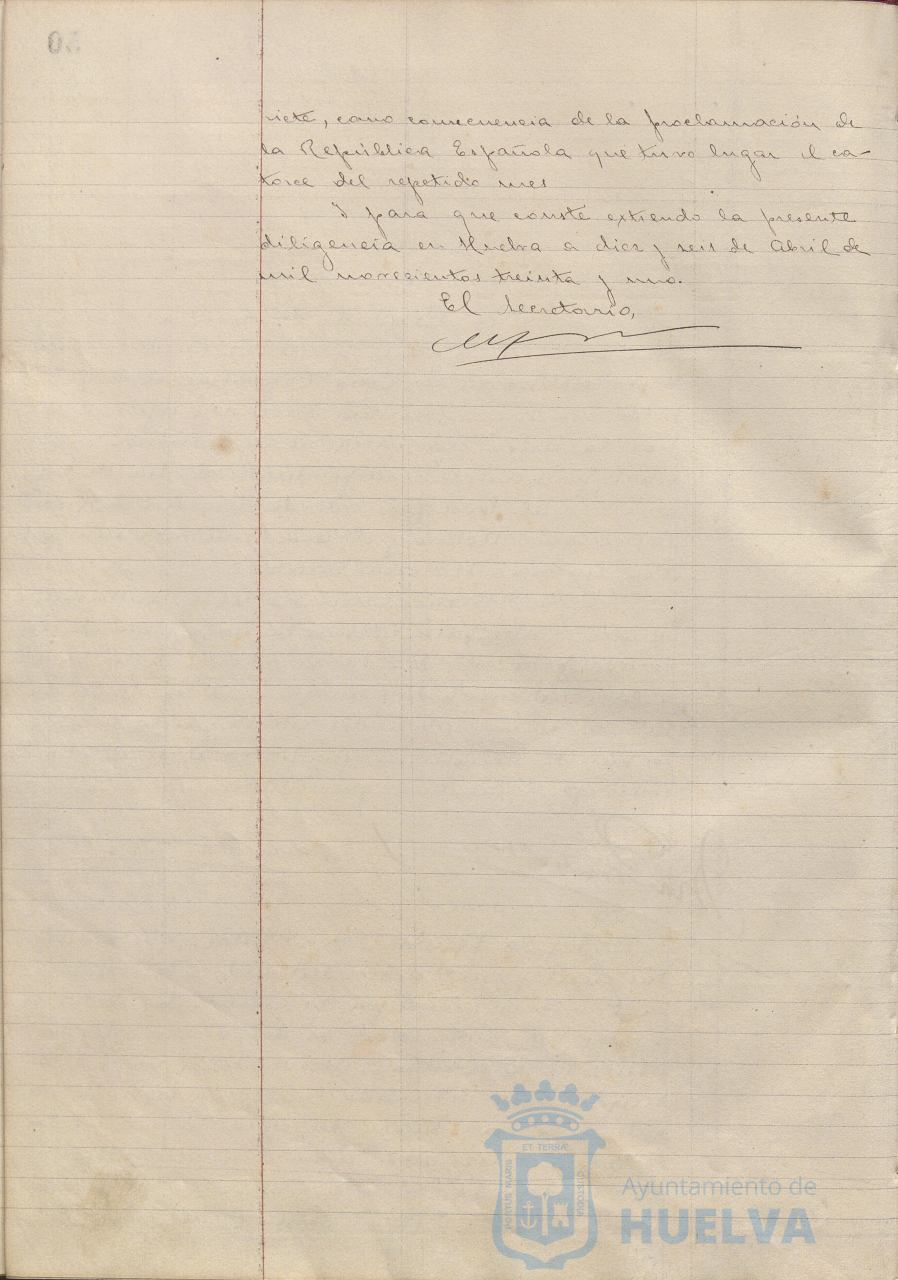 siete, como consecuencia de la proclamación de
la República Española que tuvo lugar el ca-
torce del repetido mes
Y para que conste extiendo la presente
diligencia en Huelva a diez y seis de Abril de
mil novecientos treinta y uno.
El Secretario,
ET TERRÆ
PORTUS MARIS
CUSTODIA
Ayuntamiento de
HUELVA